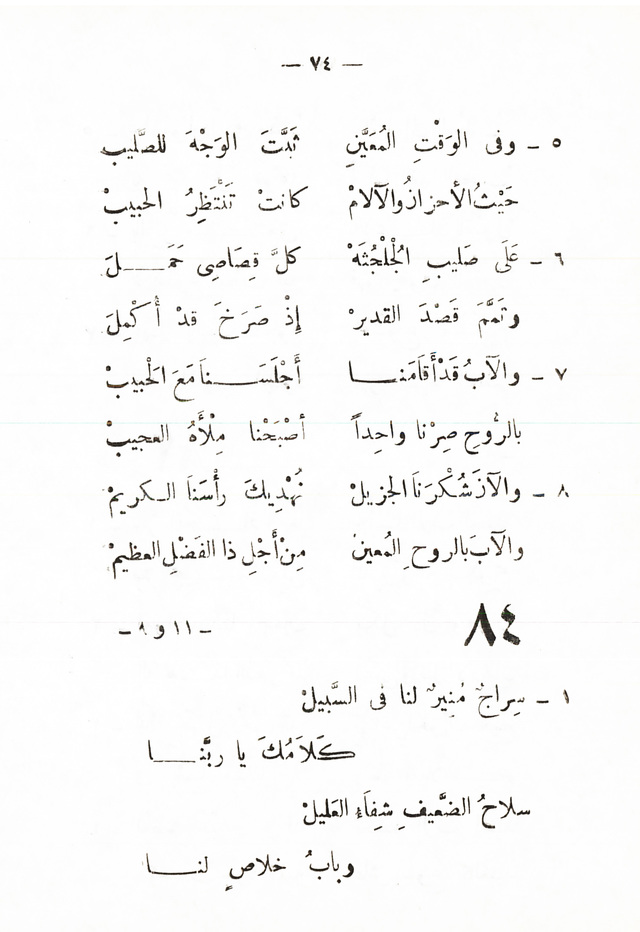 — ٧٤ —
٥ – وفى الوَقْتِ المُعَيَّنِ ثَبَّتَّ الوَجْهَ للصَّليبْ
حَيْثُ الأحزانُ والآلامْ كانتْ تَنْتَظِرُ الحبيبْ
٦ – عَلَى صَليبِ الجُلْجُثَهْ كلَّ قِصَاصِى حَمَـــلَ
وتَمَّمَ قَصْدَ القديرْ إذْ صَرَخَ قدْ أُكْمِلَ
٧ – والآبُ قَدْ أَقَامَنـــا أَجْلَسَـــنَا مَعَ الحَبيبْ
بالرُّوحِ صِرْنا واحِداً أصْبَحْنا مِلْأَهُ العجيبْ
٨ – والآنَ شُكْرَنَا الجزيلْ نُهْدِيكَ رأْسَنَا الـكريمْ
والآبَ بالروحِ المُعينْ مِنْ أَجْلِ ذا الفَضْلِ العظيمْ
٨٤ – ١١ و ٩ –
١ – سِراجٌ مُنِيرٌ لنا فى السَّبيلْ
كَلَامُكَ يا ربَّنـــا
سلاحُ الضَّعيفِ شِفَاءُ العَليلْ
وبابُ خلاصٍ لنـــا